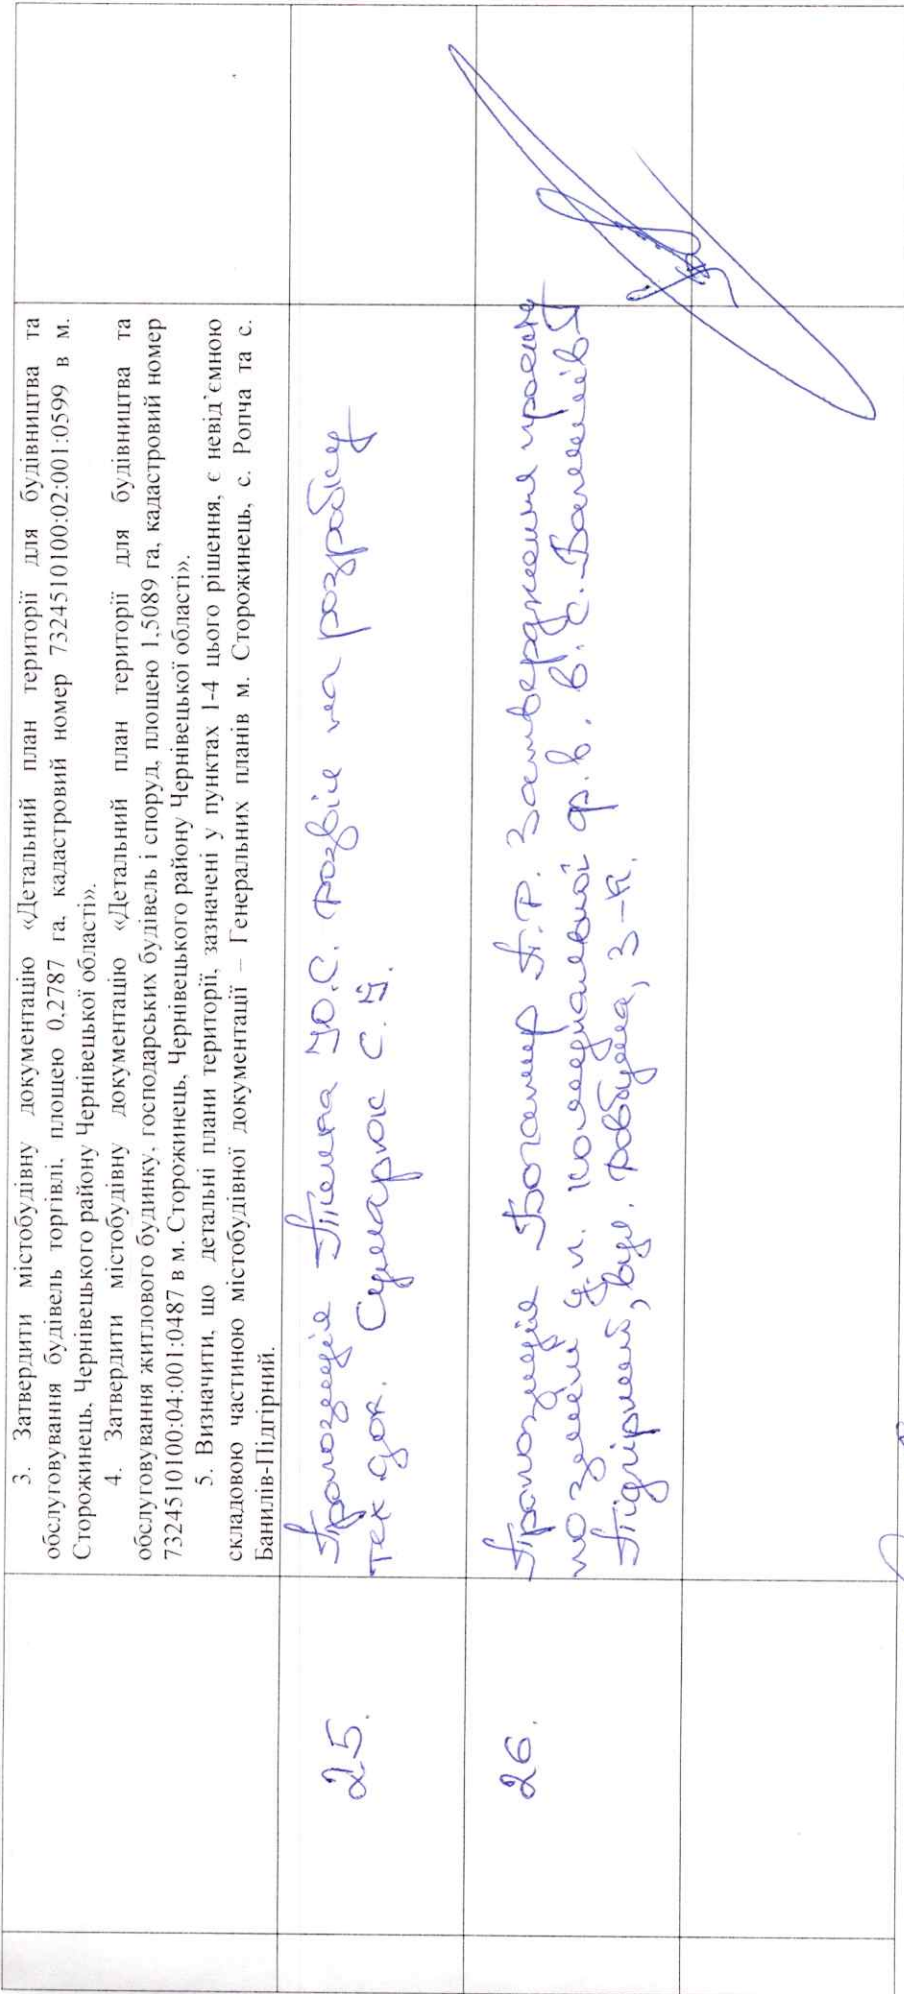 3. Затвердити містобудівну документацію «Детальний план території для будівництва та
обслуговування будівель торгівлі, площею 0,2787 га, кадастровий номер 7324510100:02:001:0599 в м.
Сторожинець, Чернівецького району Чернівецької області».
4. Затвердити містобудівну документацію «Детальний план території для будівництва та
обслуговування житлового будинку, господарських будівель і споруд, площею 1,5089 га, кадастровий номер
7324510100:04:001:0487 в м. Сторожинець, Чернівецького району Чернівецької області».
5. Визначити, що детальні плани території, зазначені у пунктах 1-4 цього рішення, є невід`ємною
складовою частиною містобудівної документації – Генеральних планів м. Сторожинець, с. Ропча та с.
Банилів-Підгірний.
25.
Пропозиція Ю.С. дозвіл на розробку
тех док. С.
26.
Пропозиція Богатир П.Р. Затвердження проєкту
по землеу комунальної ф.в. в с. Банилів
Підгірний, вул. 3-